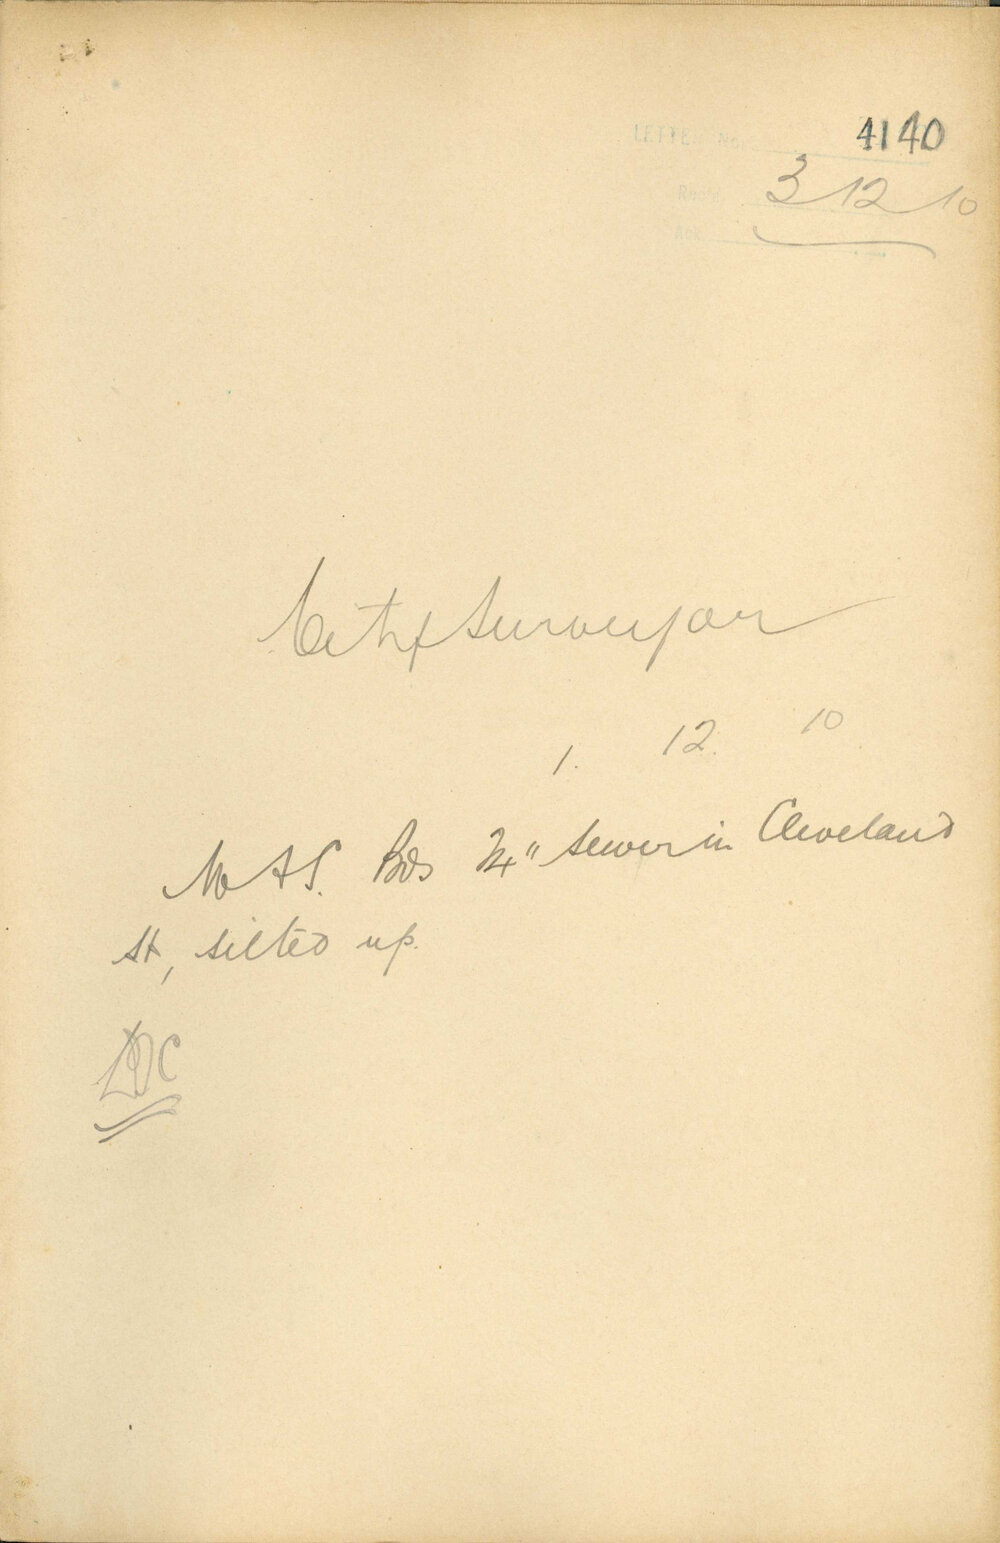 LETTER No. 4140
Rec'd 3 12 10
Ack
City Surveyor
1. 12. 10
W & S. Bds 24" sewer in Cleveland
St, silted up.